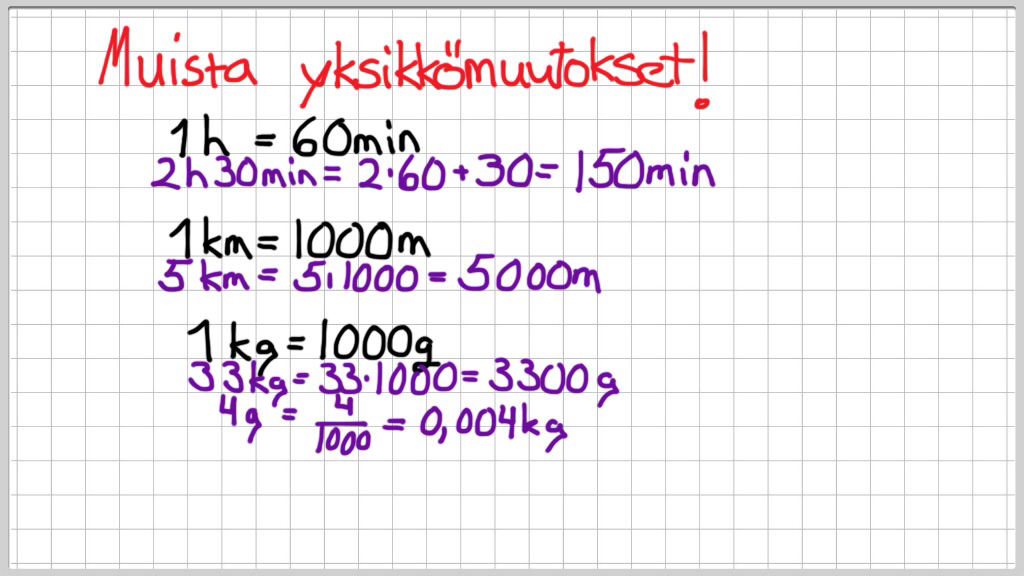 Muista yksikkömuutokset!
1h = 60min
2h 30min = 2·60 + 30 = 150min
1km = 1000m
5 km = 5·1000 = 5000m
1kg = 1000g
33kg = 33·1000 = 3300g
4g = 4/1000 = 0,004kg